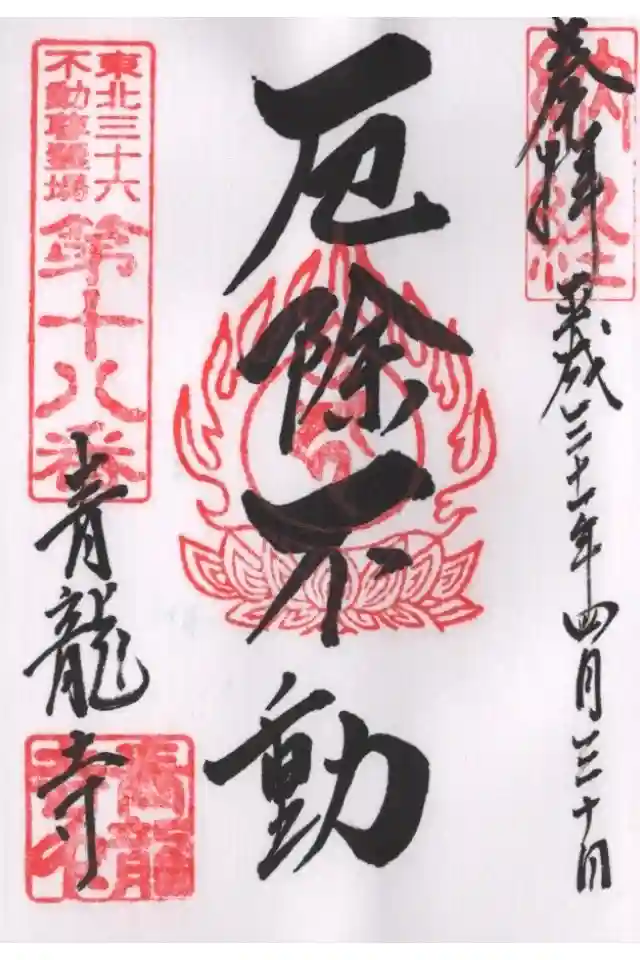 奉拝
平成三十一年四月三十日
納経社
厄除不動
東北三十六
不動尊霊場
第十八番
青龍寺